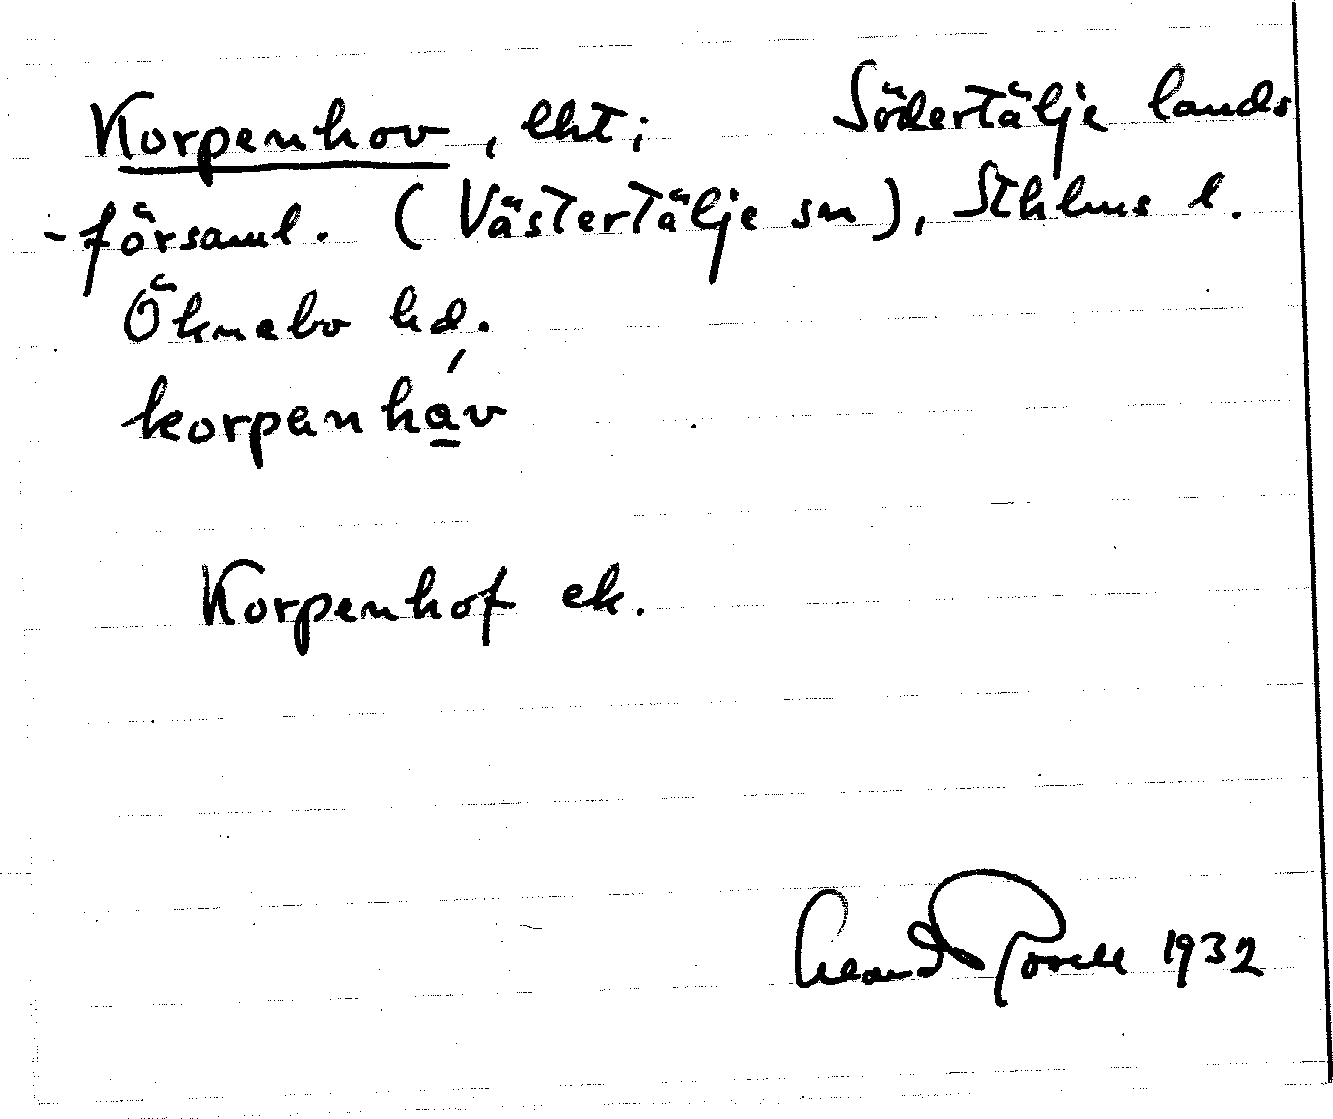 Korpenhov, lht; Södertälje lands
-församl. (Västertälje sn), Sthlms l.
Öknebo hd.
korpenhá̱v
Korpenhof ek.
1932